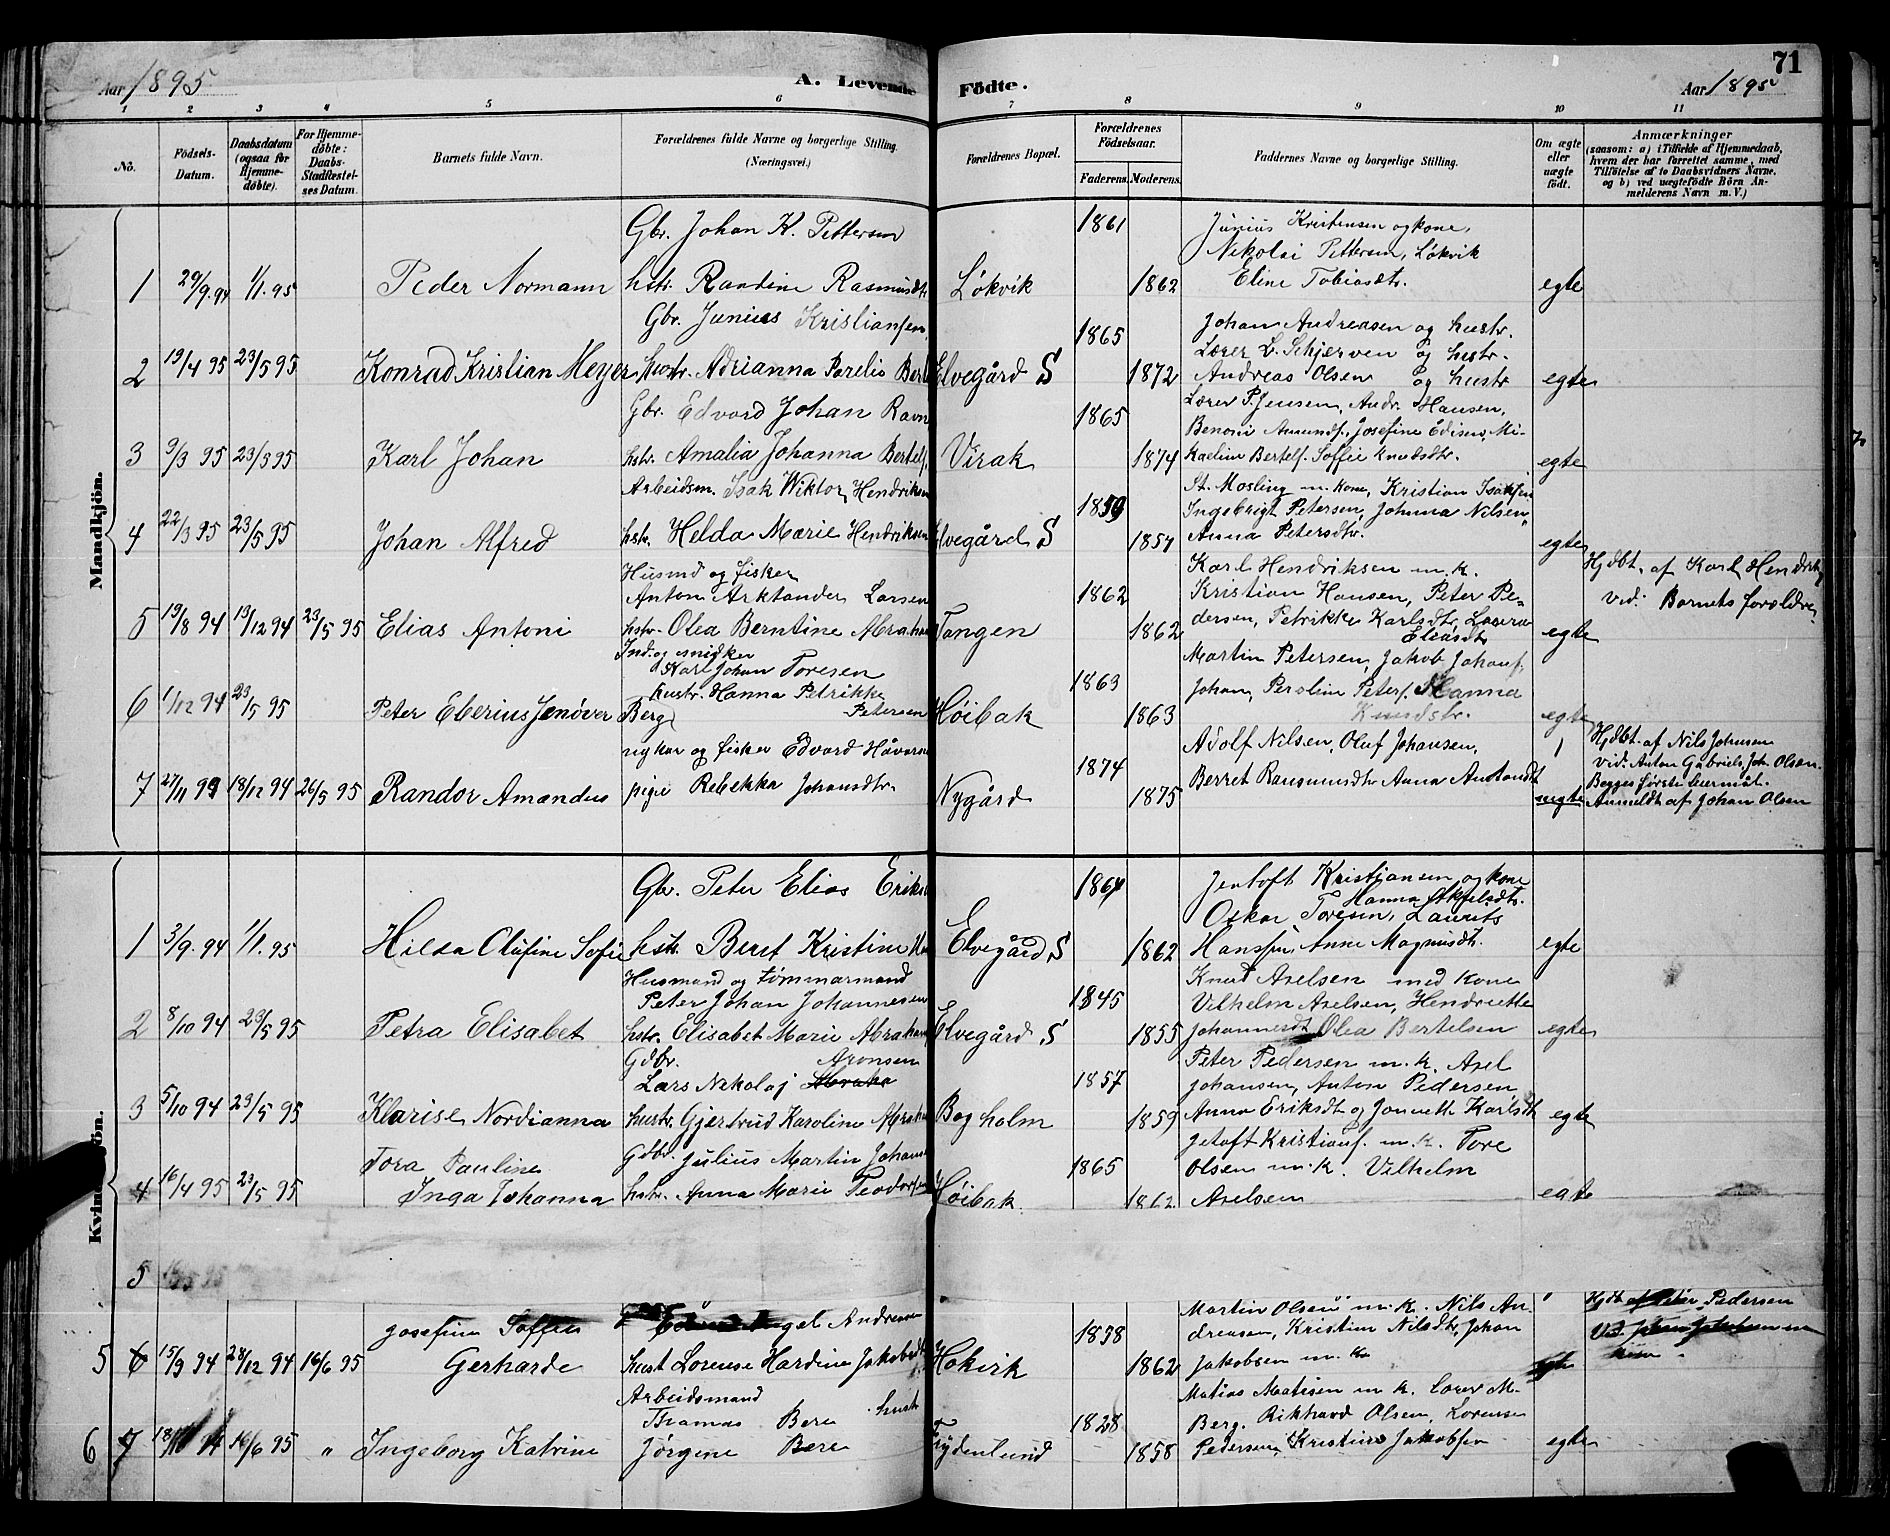 71
Aar 1895. A. Levende Födte. Aar 1895
1 2 3 4 5 6 7 8 9 10 11
No.
Födsels-Datum.
Daabsdatum (ogsaa for Hjemme-döbte).
For Hjemme-döbte: Daabs-Stadfæstel-ses Datum.
Barnets fulde Navn.
Forældrenes fulde Navne og borgerlige Stilling. (Næringsvei.)
Forældrenes Bopæl.
Forældrenes Födselsaar.
Faderens. Moderens.
Faddernes Navne og borgerlige Stilling.
Om ægte eller uægte födt.
Anmærkninger
(saasom: a) i Tilfælde af Hjemmedaab,
hvem der har forrettet samme, med
Tilföielse af to Daabsvidners Navne,
og b) ved uægtefödte Börn An-
melderens Navn m.V.)
Mandkjön.
Gbr. Johan K. Pettersen 1861 Junius Kristensen og kone,
Nikolai Pettersen, Løkvik
1 29/9.94 1/1.95 Peder Normann hstr. Randine Rasmusdtr Løkvik 1862 Eline Tobiasdtr. egte
Gbr. Junius Kristiansen, 1865 Johan Andreasen og hustr.
Lærer L. Schjerven og hustr.
2 19/4 95 23/5 95 Konrad Kristian Meyer hustr. Adrianna Parelis Bert Elvegård S 1872 Andreas Olsen og hustr egte
Gbr. Edvard Johan Ravn 1865 Lærer P. Jensen, Andr. Hansen,
Benoni Amundf. Josefine Edisens, Mi-
3 9/3 95 23/5 95 Karl Johan hstr. Amalia Johanna Bertelf. Virak 1874 kaeline Bertelf. Soffie Knudsdtr. egte
Arbeidsm. Isak Wiktor, Hendriksen 1859 St. Mosling m. kone, Kristian Isaksen
Ingebrigt Petersen, Johnna Nilsen
4 22/3 95 23/5 95 Johan Alfred hstr. Helda Marie Hendriksen Elvegård S 1857 Anna Petersdtr. egte
Husmd og fisker Karl Hendriksen m. k. Hjdbt. af Karl Hendrik
Anton Arktander Larsen 1862 Kristian Hansen, Peter Pe- vid. Barnets forældre,
5 19/8 94 13/12 94 23/5 95 Elias Antoni hstr. Olea Berntine Abraham Tangen 1862 dersen, Petrikke Karlsdtr, Lovera egte
Eliasdtr
Ind. og snidker Martin Petersen, Jakob Johansf,
Karl Johan Toresen 1863
6 1/12 94 23/5 95 Peter Eberius Jenøver Berg hustr. Hanna Petrikke Petersen Høibak 1863 Johan, Peroline Petersf. Hanna Knudsdtr. egte
ugkar og fisker Edvard Håvarse 1874 Adolf Nilsen, Oluf Johansen, Hjdbt. af Nils Johnsen
vid. Anton Gabriels, Joh. Olsen.
7 27/11 94 18/12 94 26/5 95 Randor Amandus pige Rebekka Johansdtr. Nygård 1875 Berret Rausmundtr Anna Antondt uegte Begges første leiermål.
Anmeldt af Johan Olsen
Kvindekjön.
Gbr. Peter Elias Erikse 1864 Jentoft Kristiansen og kone
Hanna Akselsdtr.
Oskar Toresen, Laurits
1 3/9.94 1/1.95 Hilda Olufine Sofie hstr. Beret Kristine Elvegård S 1862 Hanssen, Anne Magnusdtr. egte
Husmand og tømmarmand Knud Axelsen med kone
Peter Johan Johannesen 1845 Vilhelm Axelsen, Hendriette
2 8/10 94 23/5 95 Petra Elisabet hstr. Elisabet Marie Abraham Elvegård S 1855 Johannesdt Olea Bertelsen egte
Gdbr. Aronsen Peter Pedersen m. k. Axel
Lars Nekolaj Abraha 1857 Johansen, Anton Pedersen
3 5/10 94 23/5 95 Klarise Nordianna hustr. Gjertrud Karoline Abraha Bogholm 1859 Anna Eriksdt og Jonnette Karlsdt egte
Gdbr. Julius Martin Johans 1865 Jetoft Kristiansf. m. k. Tore
4 16/4 95 23/5 95 Tora Pauline Olsen m. k. Vilhelm
Inga Johanna hstr. Anna Marie Teodors Høibak 1862 Axelsen egte
5
Josefine Soffie Edvard Angel Andreasen 1858 Martin Olsen m. k. Nils An- Hjdt af Peter Pedersen
dreasen, Kristine Nilsdtr, Johan
5 6 15/9 94 28/12 94 16/6 95 Gerharde hust Lorense Hardine Jakobsdt Hokirk 1862 Jakobsen m. k. egte
Arbeidsmand Matias Matisen m k. Lærer M-
Thomas Berg hustr 1828 Berg. Rikhard Olsen, Lorense
6 7 18/10 94 16/6 95 " Ingeborg Katrine Jørgine Berg Frydenlund 1858 Pedersen, Kristine Jakobsen egte